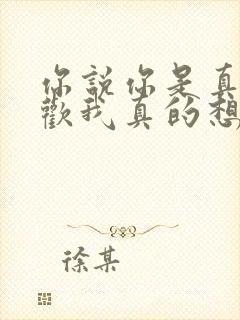 你說你是真
歡我真的想
徐某